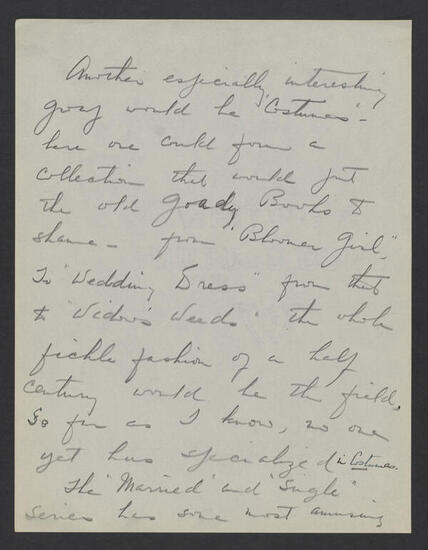 Another especially interesting
group would be "Costumes" -
here one could form a
collection that would put
the old Goady Books to
shame - from "Bloomer Girl",
To "Wedding Dress" from that
to "Widow's Weeds" the whole
fickle fashion of a half
century would be the field.
So far as I know, no one
yet has specialized in Costumes.
The "Married" and "Single"
series has some most amusing